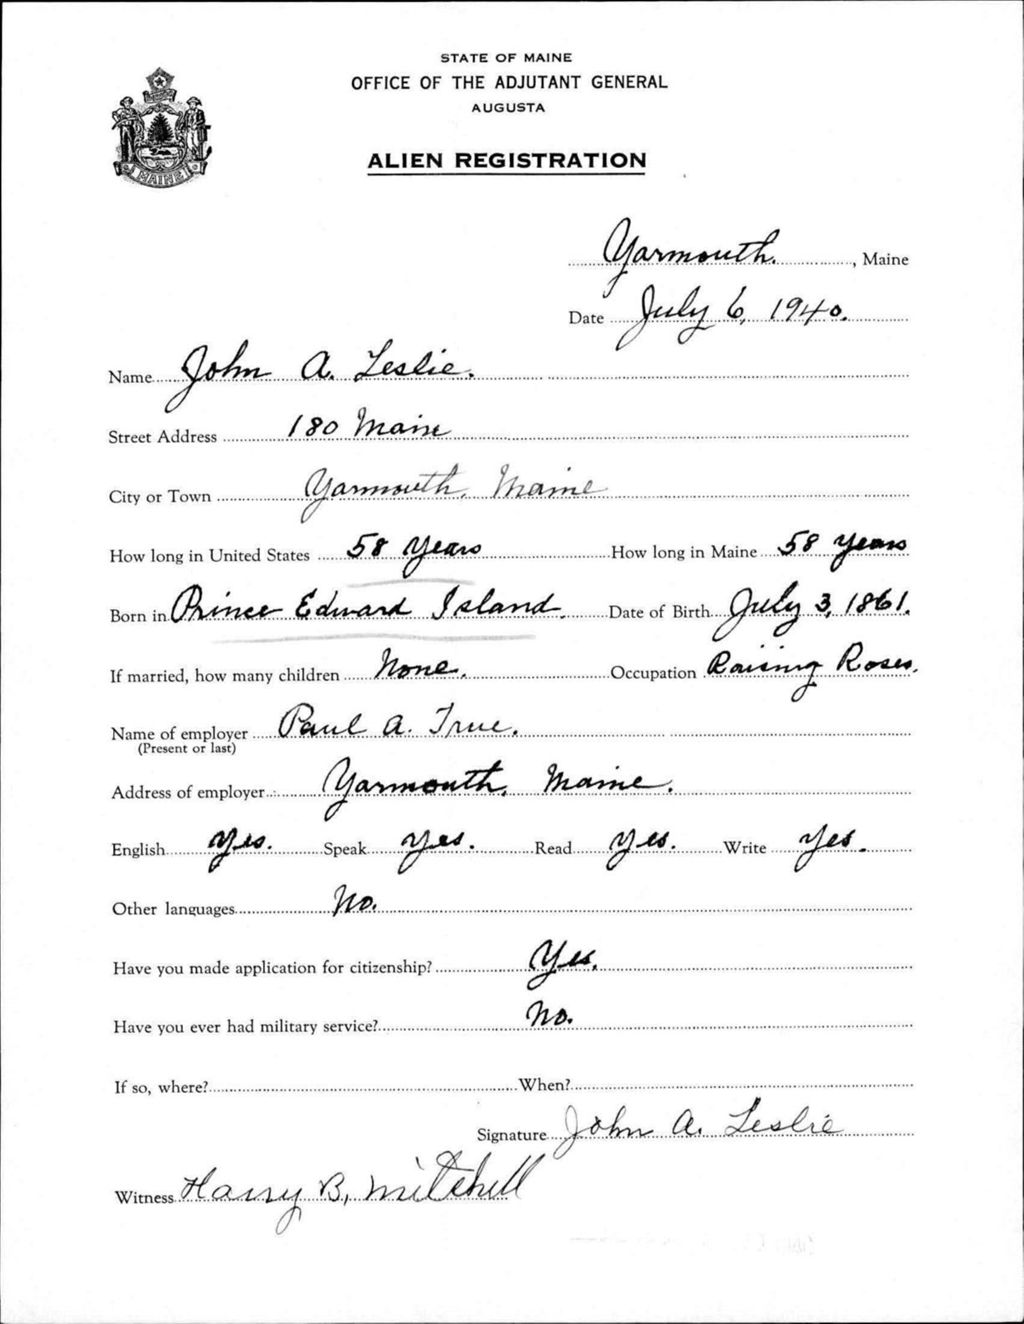 STATE OF MAINE
OFFICE OF THE ADJUTANT GENERAL
AUGUSTA
ALIEN REGISTRATION
MAINE
Yarmouth, Maine
Date July 6, 1940.
Name John A. Leslie.
Street Address 180 Maine
City or Town Yarmouth, Maine
How long in United States 58 Years How long in Maine 58 years
Born in Prince Edward Island. Date of Birth July 3, 1861.
If married, how many children None. Occupation Raising Roses.
Name of employer Paul A. True.
(Present or last)
Address of employer Yarmouth, Maine.
English Yes. Speak Yes. Read Yes. Write Yes.
Other languages No.
Have you made application for citizenship? Yes.
Have you ever had military service? No.
If so, where? When?
Signature John A. Leslie
Witness Harry B. Mitchell